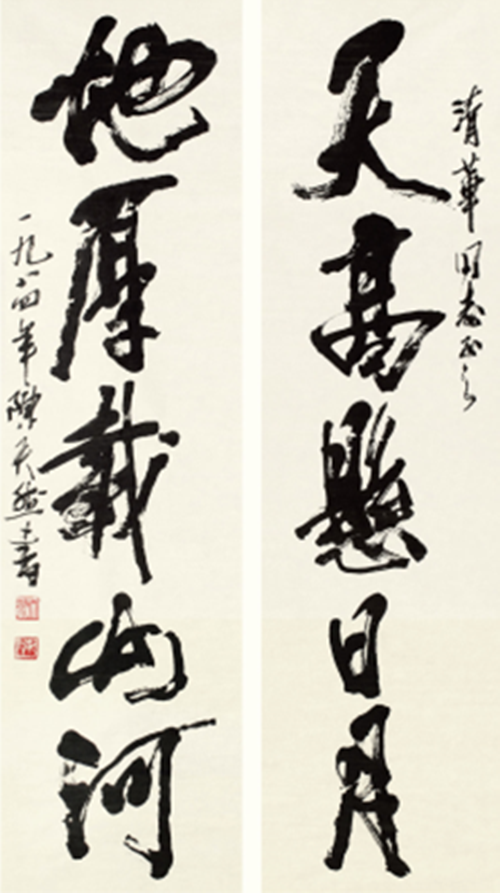 清華同志正之
天高懸日月
地厚載山河
一九八四年陳天然書